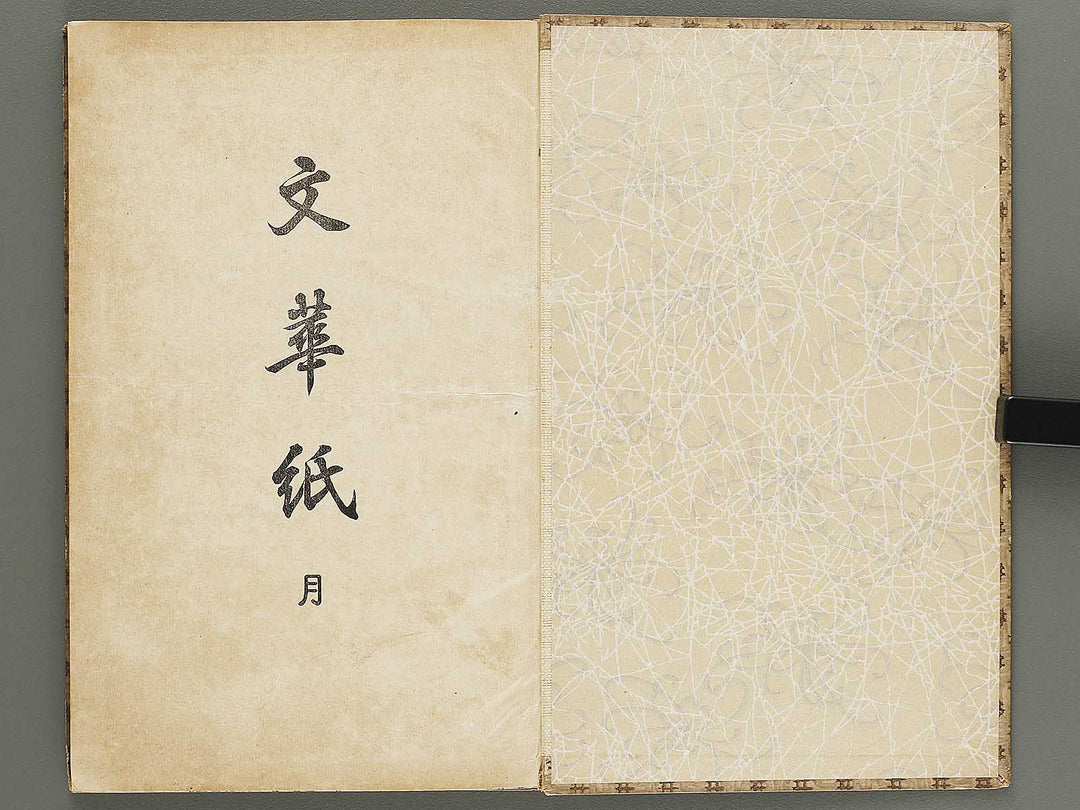 文華紙
月